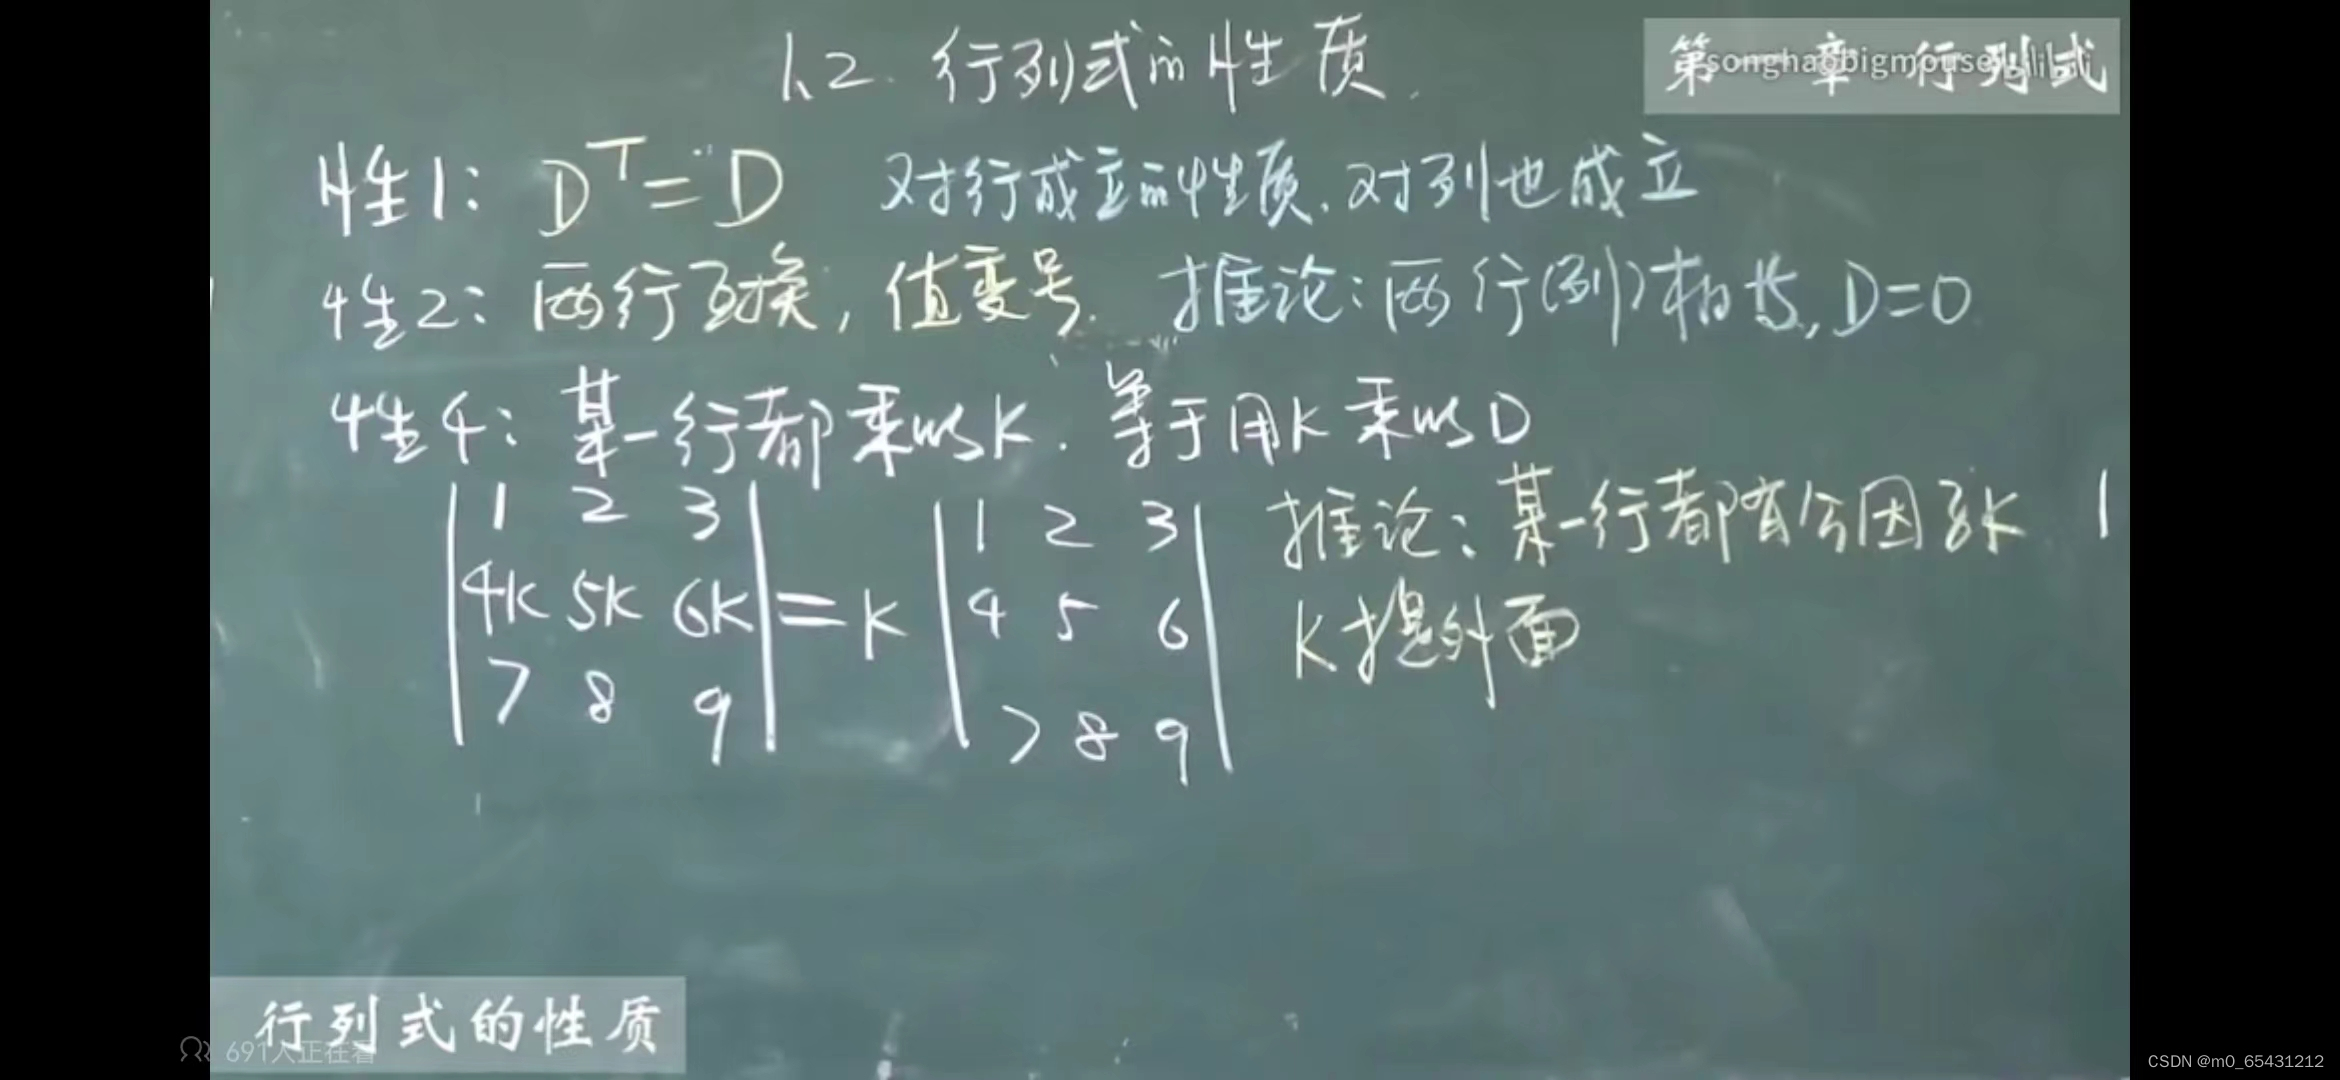 1.2. 行列式的性质
第一章 行列式
songhaobigmouse
性1: D^T = D 对行成立的性质, 对列也成立
性2: 两行互换, 值变号. 推论: 两行(列)相等, D=0
性4: 某一行都乘以K. 等于用K乘以D
推论: 某一行都有公因子K
K提外面
1 2 3
4K 5K 6K
7 8 9
= K
1 2 3
4 5 6
7 8 9
行列式的性质
691人正在看
CSDN @m0_65431212